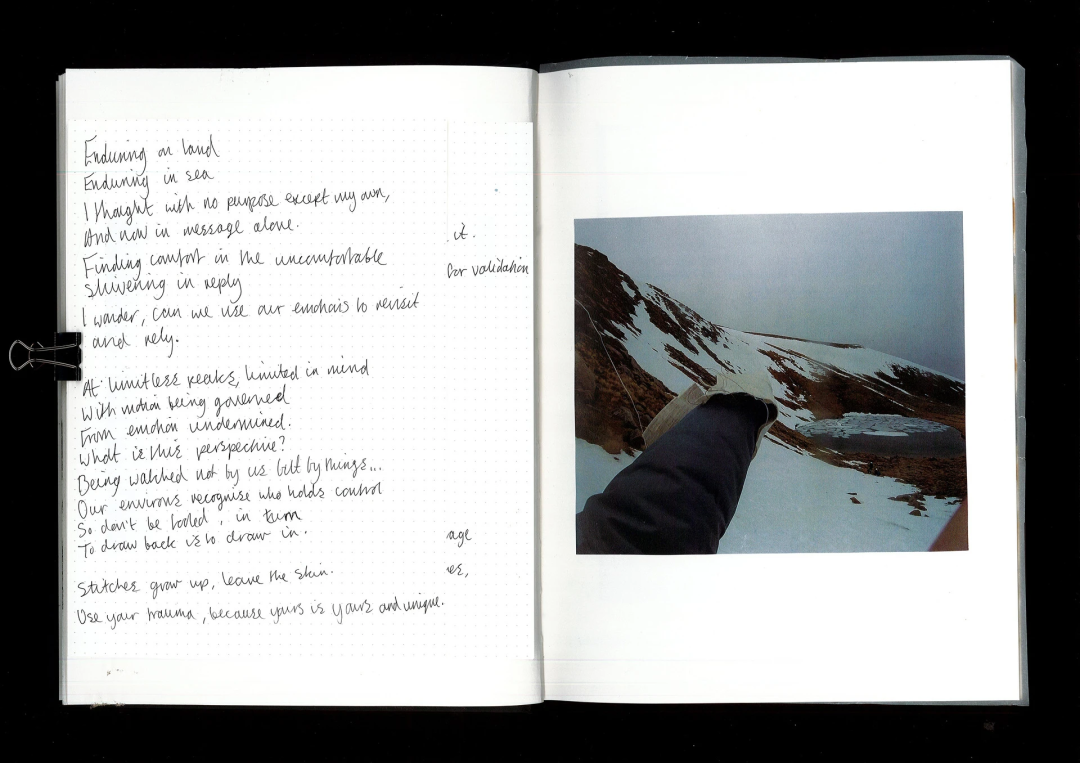 Enduring on land
Enduring in sea
I thought with no purpose except my own,
And now in message alone.
Finding comfort in the uncomfortable
Shivering in reply
I wonder, can we use our emotions to revisit
and rely.
At limitless peaks, limited in mind
With motion being governed
From emotion undermined.
What is this perspective?
Being watched not by us but by things...
Our environs recognise who holds control
So don't be fooled, in turn
To draw back is to draw in.
Stitches grow up, leave the skin.
Use your trauma, because yours is yours and unique.
it.
for validation
age
es,